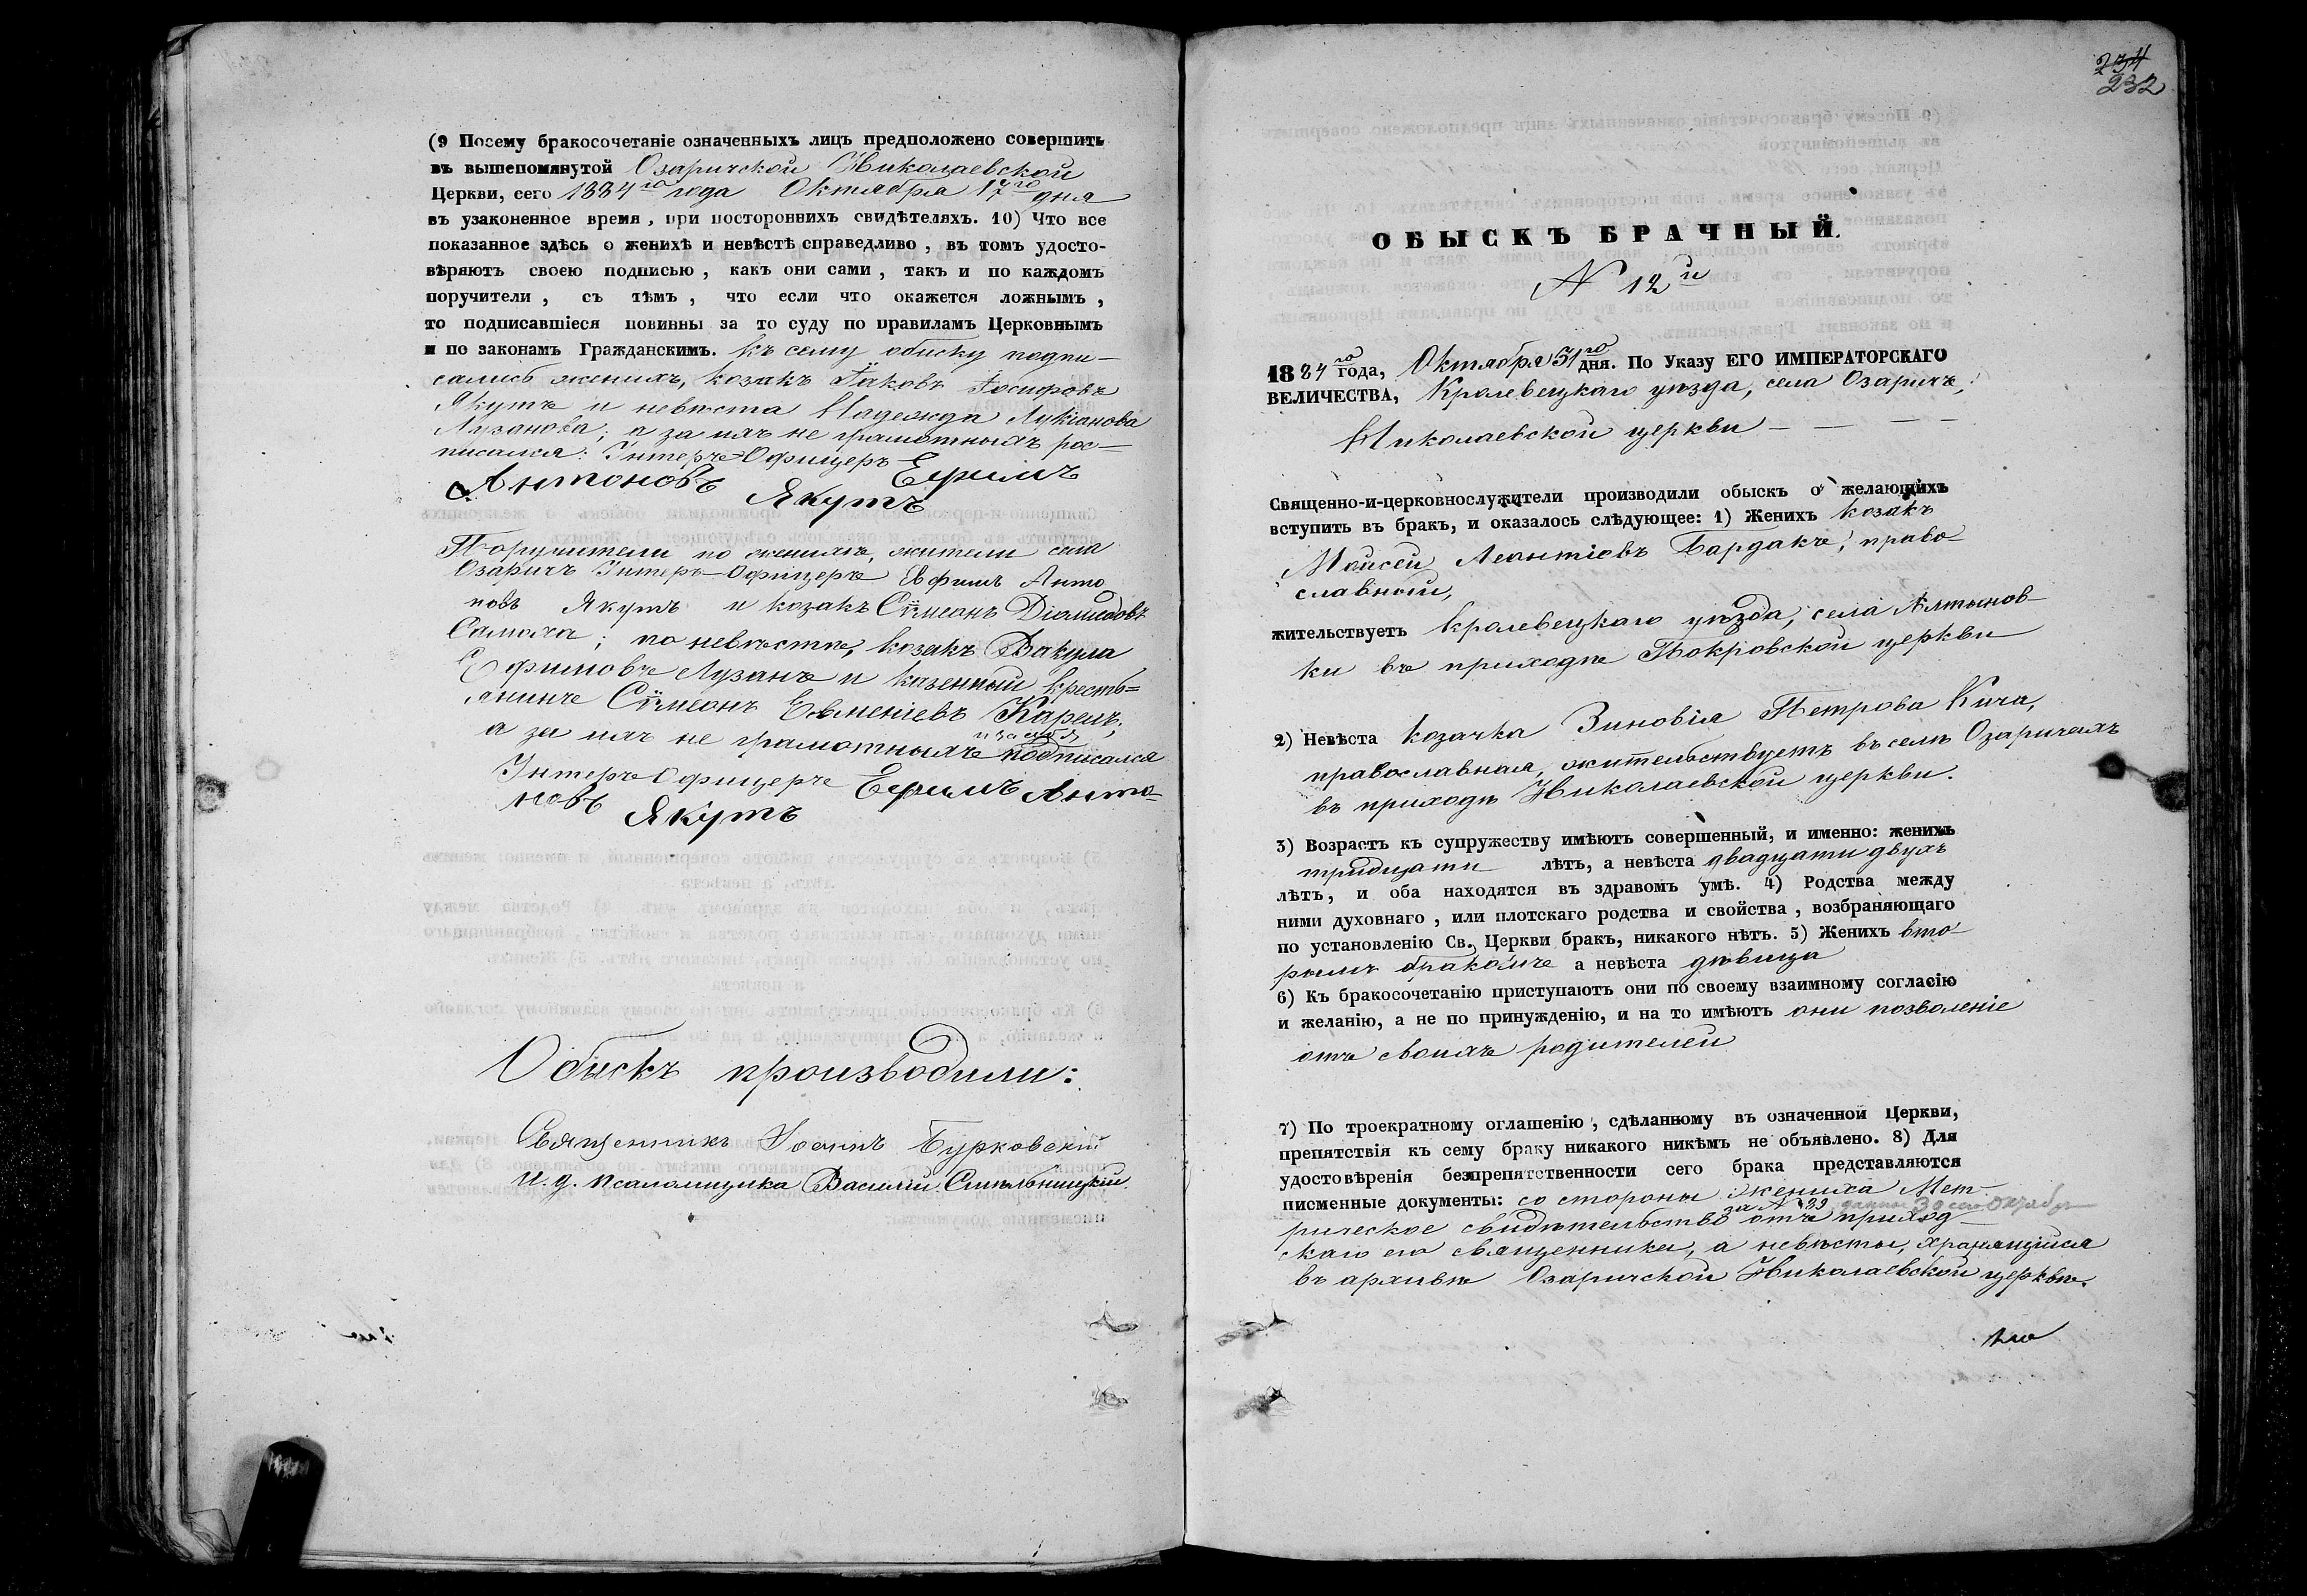 (9 Посему бракосочетаніе означенныхъ лицъ предположено совершить
въ вышепомянутой Озаричской Николаевской
Церкви, сего 1884го года Октября 17го дня
въ узаконенное время, при постороннихъ свидѣтеляхъ. 10) Что все
показанное здѣсь о женихѣ и невѣстѣ справедливо, въ томъ удосто-
вѣряютъ своею подписью, какъ они сами, такъ и по каждомъ
поручители, съ тѣмъ, что если что окажется ложнымъ,
то подписавшіеся повинны за то суду по правиламъ Церковнымъ
и по законамъ Гражданскимъ. Къ сему обыску подпи-
сались женихъ, козакъ Іаковъ Іосифовъ
Якутъ и невѣста Надежда Лукіанова
Лузанова; а за ихъ не грамотныхъ рос-
писался: Унтеръ-Офицеръ Ефимъ
Антоновъ Якутъ
Поручители по женихѣ, жители села
Озаричъ Унтеръ-Офицеръ Ефимъ Анто
новъ Якутъ и козакъ Сѷмеонъ Діомидовъ
Самоха; по невѣстѣ, козакъ Вакула
Ефимовъ Лузанъ и казенный кресть=
янинъ Сѷмеонъ Евменіевъ Карецъ;
а за ихъ не грамотныхъ и за себя подписался
Унтеръ Офицеръ Ефимъ Анто-
новъ Якутъ
Обыскъ производили:
Священникъ Іоаннъ Бурковскій
и. д. псаломщика Василій
234
232
ОБЫСКЪ БРАЧНЫЙ.
N 12й
1884го года, Октября 31го дня. По Указу ЕГО ИМПЕРАТОРСКАГО
ВЕЛИЧЕСТВА, Кролевецкаго уѣзда, села Озаричъ,
Николаевской церкви — — — —
Священно-и-церковнослужители производили обыскъ о желающихъ
вступить въ бракъ, и оказалось слѣдующее: 1) Женихъ козакъ
Мойсей Леонтіевъ Бардакъ, право-
славный,
жительствуетъ Кролевецкаго уѣзда, села Алтынов-
ки въ приходѣ Покровской церкви
2) Невѣста козачка Зиновія Петрова Кича,
православная, жительствуетъ въ селѣ Озаричахъ
въ приходѣ Николаевской церкви.
3) Возрастъ къ супружеству имѣютъ совершенный, и именно: женихъ
тридцати лѣтъ, а невѣста двадцати двухъ
лѣтъ, и оба находятся въ здравомъ умѣ. 4) Родства между
ними духовнаго, или плотскаго родства и свойства, возбраняющаго
по установленію Св. Церкви бракъ, никакого нѣтъ. 5) Женихъ вто-
рымъ бракомъ а невѣста дѣвица
6) Къ бракосочетанію приступаютъ они по своему взаимному согласію
и желанію, а не по принужденію, и на то имѣютъ они позволеніе
отъ своихъ родителей
7) По троекратному оглашенію, сдѣланному въ означенной Церкви,
препятствія къ сему браку никакого никѣмъ не объявлено. 8) Для
удостовѣренія безпрепятственности сего брака представляются
писменные документы: со стороны жениха Мет-
рическое свидѣтельство за N 89 данное 30 сего Октября отъ приход-
скаго его священника, а невѣсты, хранящійся
въ архивѣ Озаричской Николаевской церкви.